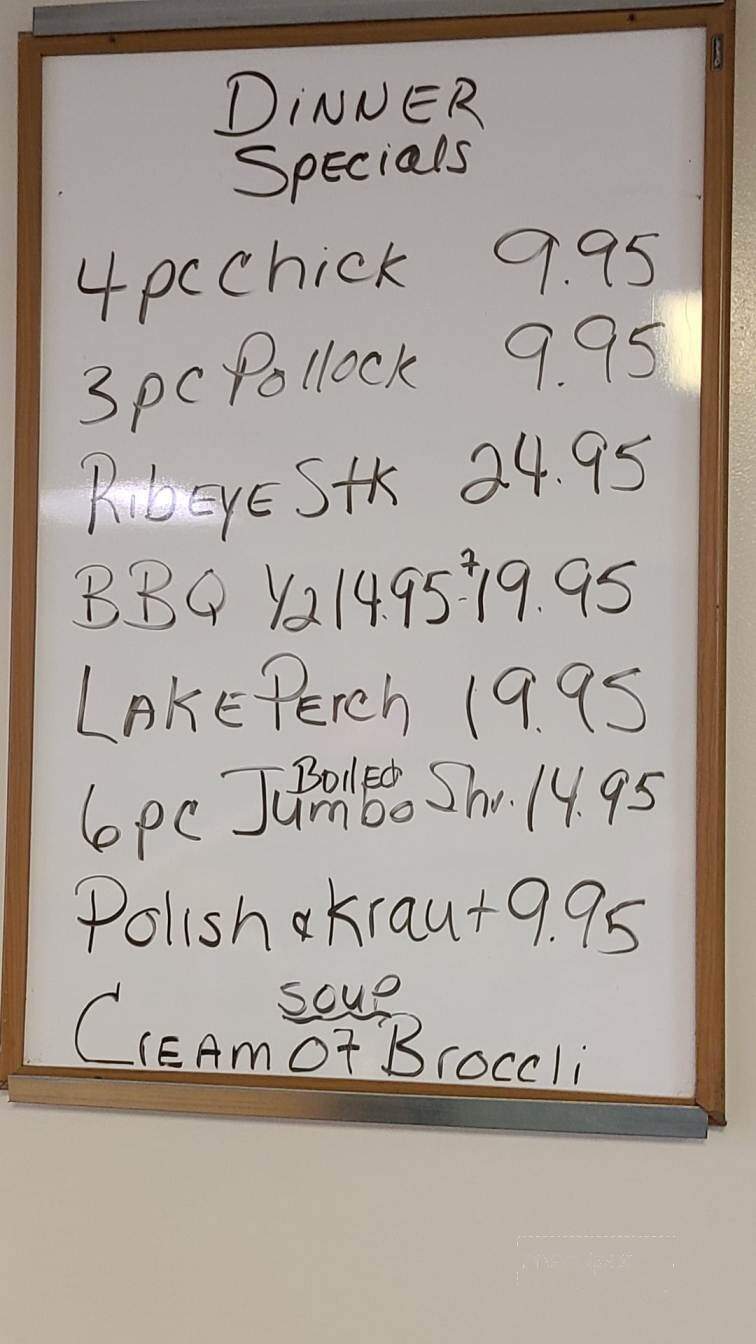 DINNER
SPECIALS
4pc Chick 9.95
3pc Pollock 9.95
RibEYE Stk 24.95
BBQ 1/2 14.95-F 19.95
LAKE PErch 19.95
6pc Jumbo Boiled Shr. 14.95
Polish & Kraut 9.95
soup
CrEAM OF Broccli